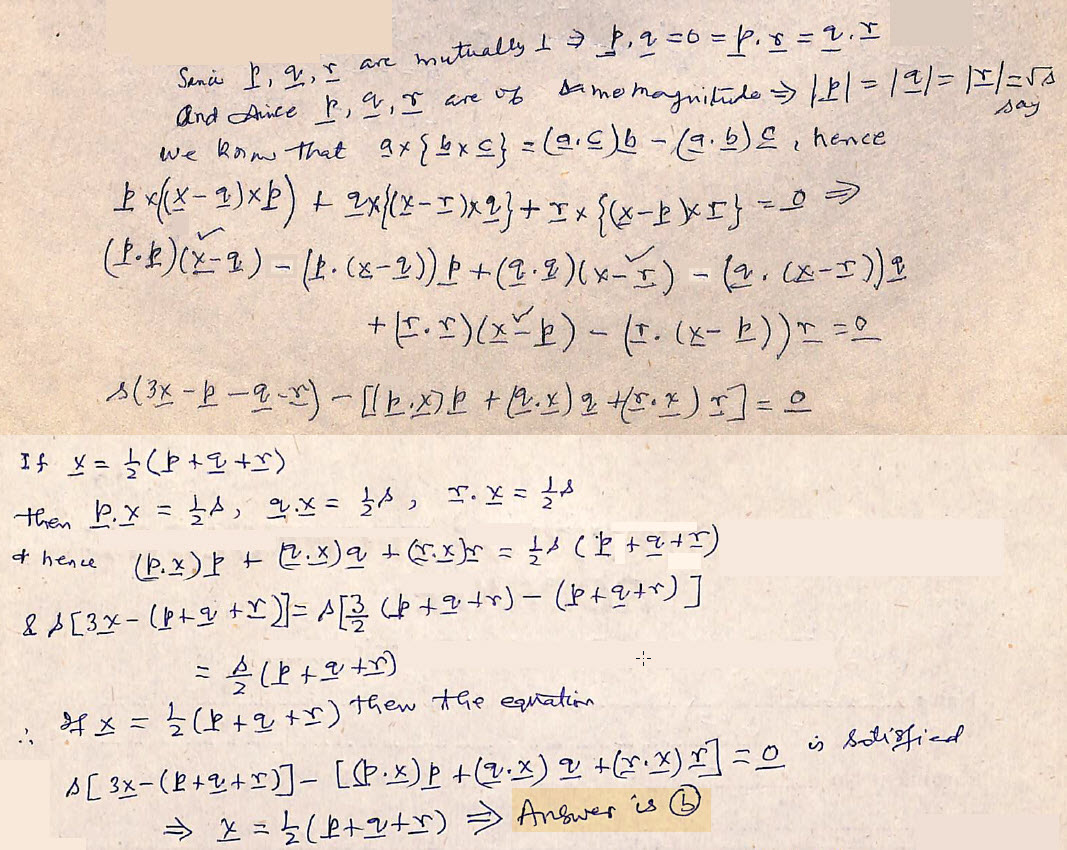 Since p, q, r are mutually ⊥ ⇒ p.q = 0 = p.r = q.r
And since p, q, r are of same magnitude ⇒ |p| = |q| = |r| = √s
say
we know that a×{b×c} = (a.c)b − (a.b)c, hence
p×((x−q)×p) + q×{(x−r)×q} + r×{(x−p)×r} = 0 ⇒
(p.p)(x−q) − (p.(x−q))p + (q.q)(x−r) − (q.(x−r))q
+ (r.r)(x−p) − (r.(x−p))r = 0
s(3x−p−q−r) − [(p.x)p + (q.x)q + (r.x)r] = 0
If x = 1/2(p+q+r)
then p.x = 1/2 s, q.x = 1/2 s, r.x = 1/2 s
& hence (p.x)p + (q.x)q + (r.x)r = 1/2 s (p+q+r)
& s[3x−(p+q+r)] = s[3/2 (p+q+r) − (p+q+r)]
= s/2 (p+q+r)
∴ If x = 1/2(p+q+r) then the equation
s[3x−(p+q+r)] − [(p.x)p + (q.x)q + (r.x)r] = 0 is satisfied
⇒ x = 1/2(p+q+r) ⇒ Answer is ⓑ